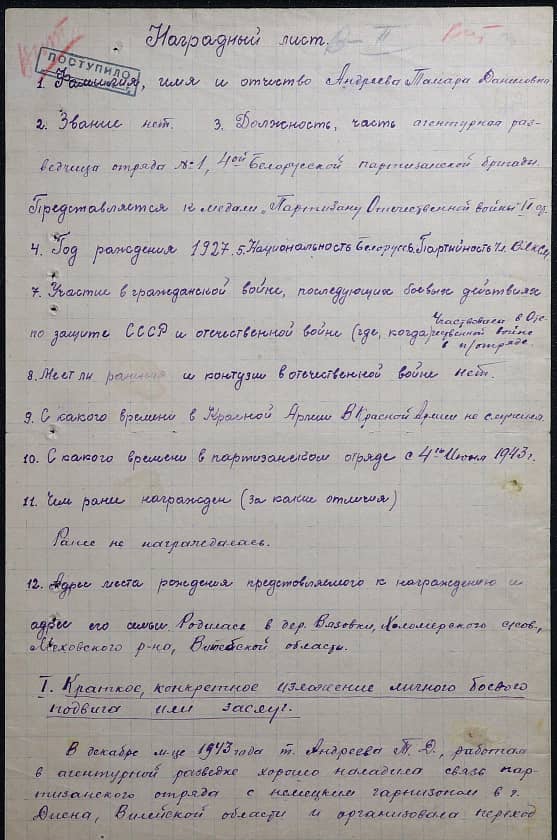 Наградный лист.
ПОСТУПИЛО
1. Фамилия, имя и отчество Андреева Тамара Даниловна
2. Звание нет. 3. Должность, часть агентурная раз-
ведчица отряда №1, 4ой Белорусской партизанской бригады.
Представляется к медали „Партизану Отечественной войны" II ст.
4. Год рождения 1927. 5. Национальность Белорус. Партийность Чл. ВЛКСМ
7. Участие в гражданской войне, последующих боевых действиях
по защите СССР и отечественной войне (где, когда) Участвовала в Оте-
чественной войне
в п/отряде.
8. Имеет ли ранения и контузии в отечественной войне нет.
9. С какого времени в Красной Армии В Красной Армии не служила.
10. С какого времени в партизанском отряде с 4го Июня 1943 г.
11. Чем ранее награжден (за какие отличия)
Ранее не награждалась.
12. Адрес места рождения представляемого к награждению и
адрес его семьи. Родилась в дер. Вязовки, Холомерского с/сов.,
Меховского р-на, Витебской области.
I. Краткое, конкретное изложение личного боевого
подвига или заслуг.
В декабре м-це 1943 года т. Андреева Т. Д., работая
в агентурной разведке хорошо наладила связь пар-
тизанского отряда с немецким гарнизоном в г.
Дисна, Вилейской области и организовала переход